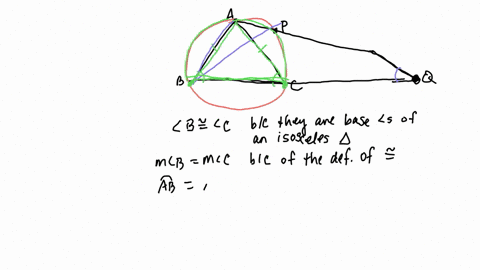 A
P
B
C
Q
∠B ≅ ∠C b/c they are base ∠s of
an isosceles △
m∠B = m∠C b/c of the def. of ≅
AB =